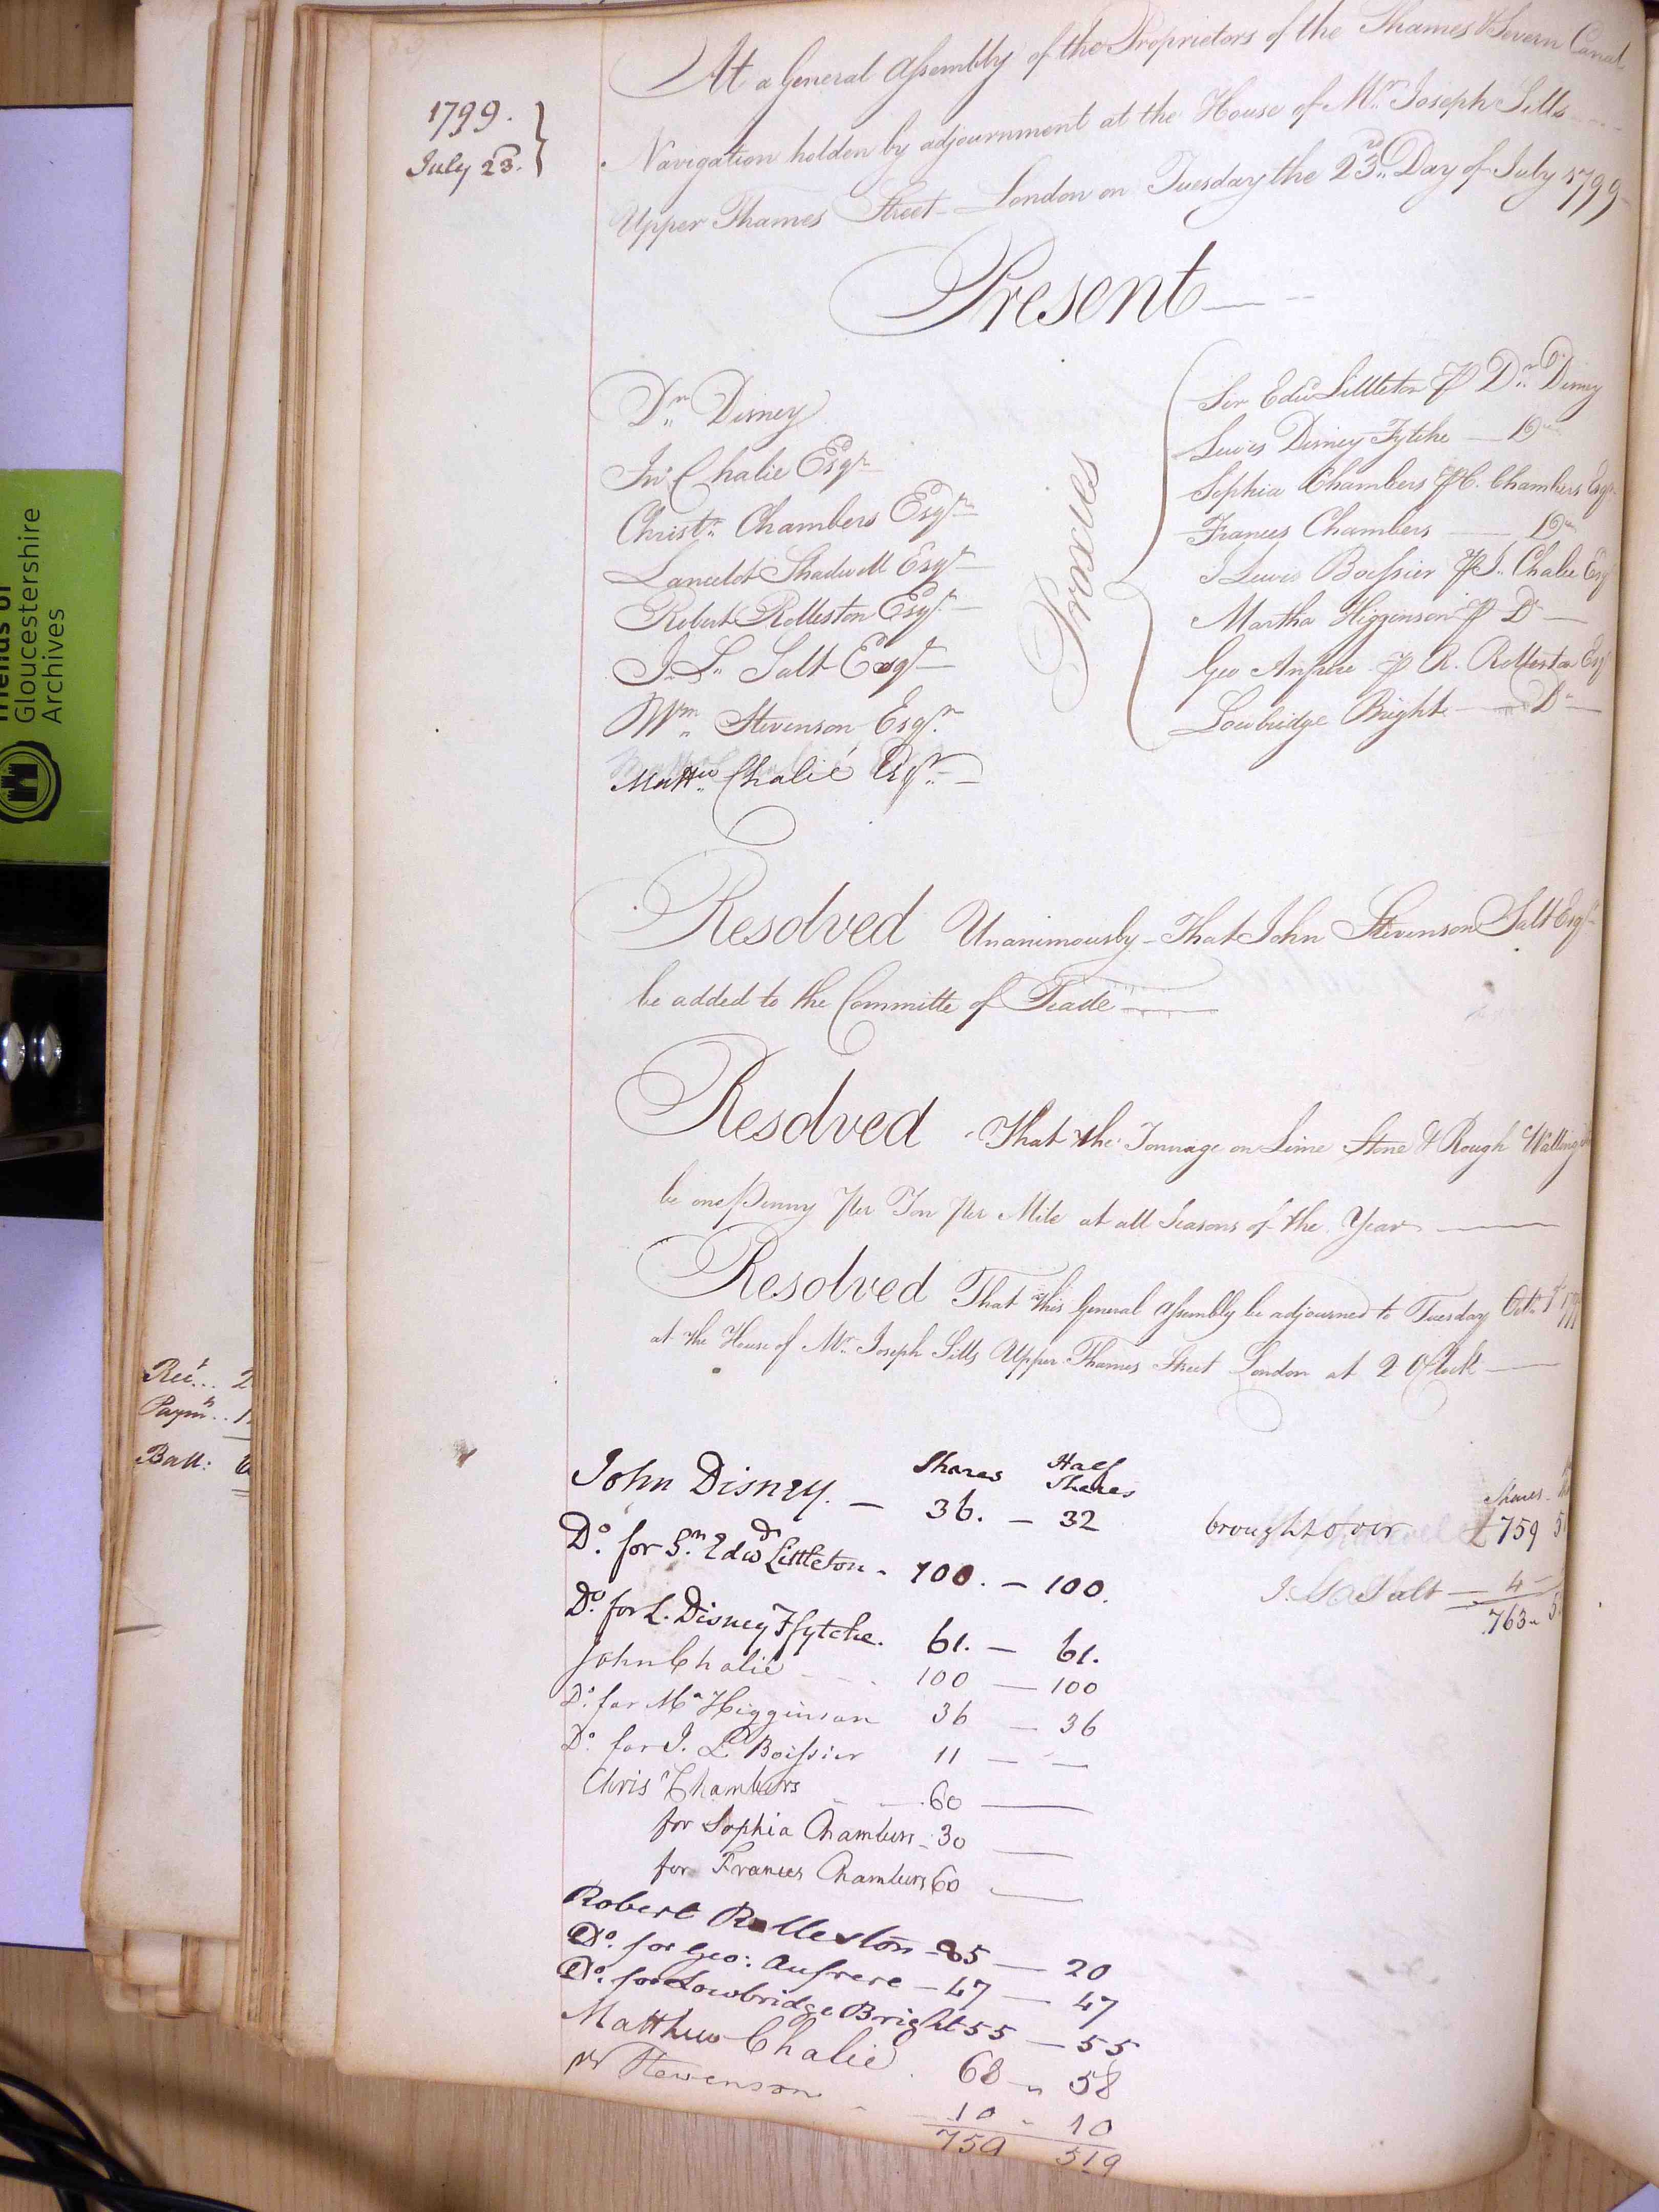 At a General Assembly of the Proprietors of the Thames & Severn Canal
1799.
July 23.
Navigation holden by adjournment at the House of Mr. Joseph Sills
Upper Thames Street London on Tuesday the 23rd. Day of July 1799
Present
Dr. Disney
Jno Chalie Esqr
Christr. Chambers Esqr
Lancelot Shadwell Esqr
Robert Rolleston Esqr.
J. S. Salt Esqr
Wm. Stevenson Esqr.
Mattw. Chalié Esqr.
Proxies
Sir Edwd Littleton P Dr. Disney
Lewis Disney Fytche Do
Sophia Chambers P C. Chambers Esqr.
Frances Chambers Do
J Lewis Boissier P J. Chalie Esqr
Martha Higginson P Do
Geo Aufrere P R. Rolleston Esqr
Lowbridge Bright Do
Resolved Unanimously That John Stevenson Salt Esqr
be added to the Committe of Trade
Resolved That the Tonnage on Lime Stone & Rough Walling
be one Penny Per Ton Per Mile at all Seasons of the Year
Resolved That this General Assembly be adjourned to Tuesday Octr. 1st 1799
at the House of Mr. Joseph Sills Upper Thames Street London at 2 OClock
Shares Half Shares
John Disney. — 36. — 32
Do. for Sr. Edwd Littleton - 100. — 100.
Do. for L. Disney Ffytche. 61. — 61.
John Chalié 100 — 100
Do. for Ma Higginson 36 — 36
Do. for J. L. Boissier 11 — —
Chrisr Chambers 60 —
for Sophia Chambers - 30 —
for Frances Chambers 60 —
Robert Rolleston - 85 — 20
Do. for Geo: Aufrere — 47 — 47
Do. for Lowbridge Bright 55 — 55
Matthew Chalié 68 58
W Stevenson 10 - 10
759 519
Shares
brought over 759
J. S. Salt — 4 —
763
Rec't... 2
Paymts.. 1
Ball:
Friends of
Gloucestershire
Archives